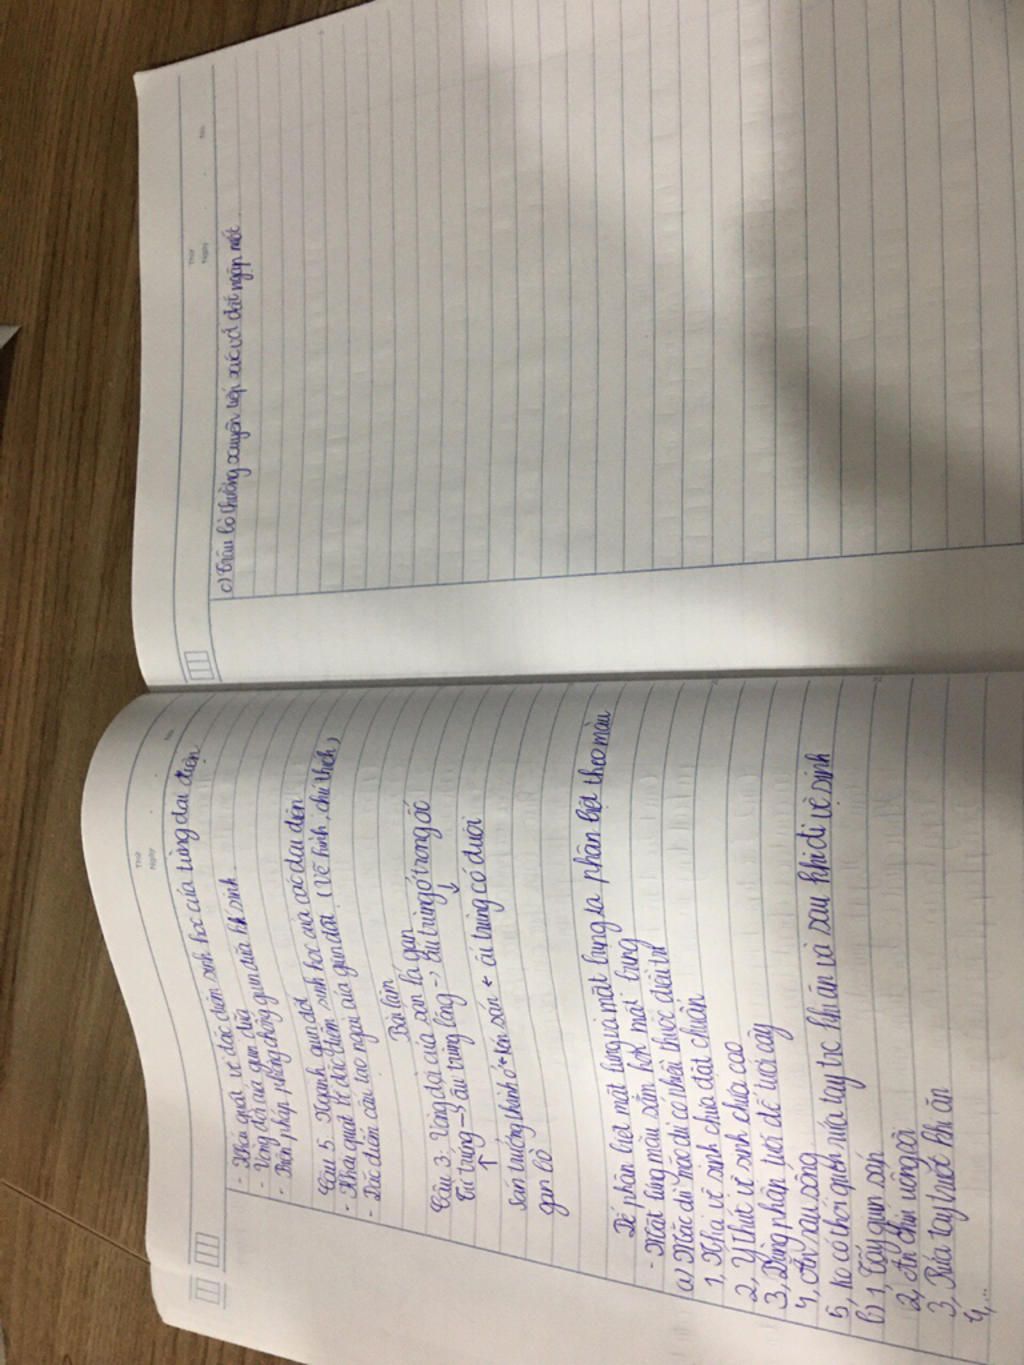 Thứ
Ngày
No.
- Khái quát về đặc điểm sinh học của từng đại diện
- Vòng đời của giun đũa
- Biện pháp phòng chống giun đũa kí sinh.
Câu 5. Ngành giun đốt
- Khái quát về đặc điểm sinh học của các đại diện
- Đặc điểm cấu tạo ngoài của giun đất. (Vẽ hình, chú thích)
Bài làm
Câu 3: Vòng đời của sán lá gan
Từ trứng → ấu trùng lông → ấu trùng ở trong ốc
↑ ↓
Sán trưởng thành ở ← kén sán ← ấu trùng có đuôi
gan bò
Để phân biệt mặt lưng và mặt bụng ta phân biệt theo màu
- Mặt lưng màu sẫm hơn mặt bụng
a) Mặc dù có thuốc điều trị
1, Nhà vệ sinh chưa đạt chuẩn
2, Ý thức vệ sinh chưa cao
3, Dùng phân tươi để tưới cây
4, Ăn rau sống
5, Ko có thói quen rửa tay trc khi ăn và sau khi đi vệ sinh
b) 1, Tẩy giun sán
2, Ăn chín uống sôi
3, Rửa tay trước khi ăn
4,...
Thứ
Ngày
No.
c) Trâu bò thường xuyên tiếp xúc với đất ngập nước